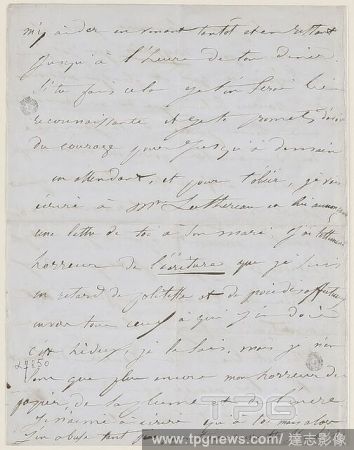 m'y aider en venant tantôt et en restant
jusqu'à l'heure de ton diner.
Si tu fais cela je t'en serai bien
reconnaissante et je te promets d'avoir
du courage jusqu'à demain
en attendant, et pour t'obéir, je vais
écrire à Mme Luthereau en lui
une lettre de toi à son mari. J'ai tellement
horreur de l'écriture que je suis
en retard de politesse et de
envers tous ceux à qui j'en dois
c'est hideux, je le sais, mais je n'en
29850
que plus encore mon horreur du
papier, de la plume et de l'encre
Je n'aime à écrire qu'à toi mais alors
j'en abuse tant
TPG
www.tpgnews.com／達志影像